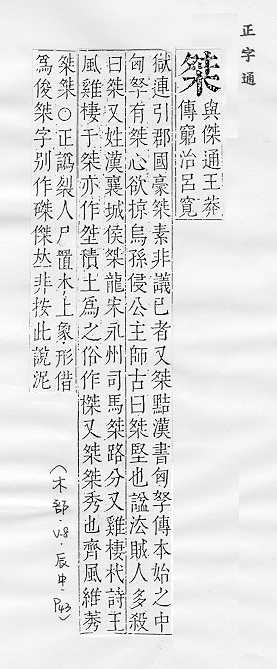 正字通
桀
與傑通王莽
傳窮治呂寬
獄連引郡國豪桀素非議已者又桀黠漢書匈奴傳本始之中
匈奴有桀心欲掠烏孫侵公主師古曰桀堅也諡法賊人多殺
曰桀又姓漢襄城侯桀龍宋永州司馬桀路分又雞棲杙詩王
風雞棲于桀亦作積土爲之俗作榤又桀桀秀也齊風維莠
桀桀○正譌裂人尸置木上象形借
爲俊桀字別作磔傑𠀤非按此說泥
(木部.V.8.辰中.P43)